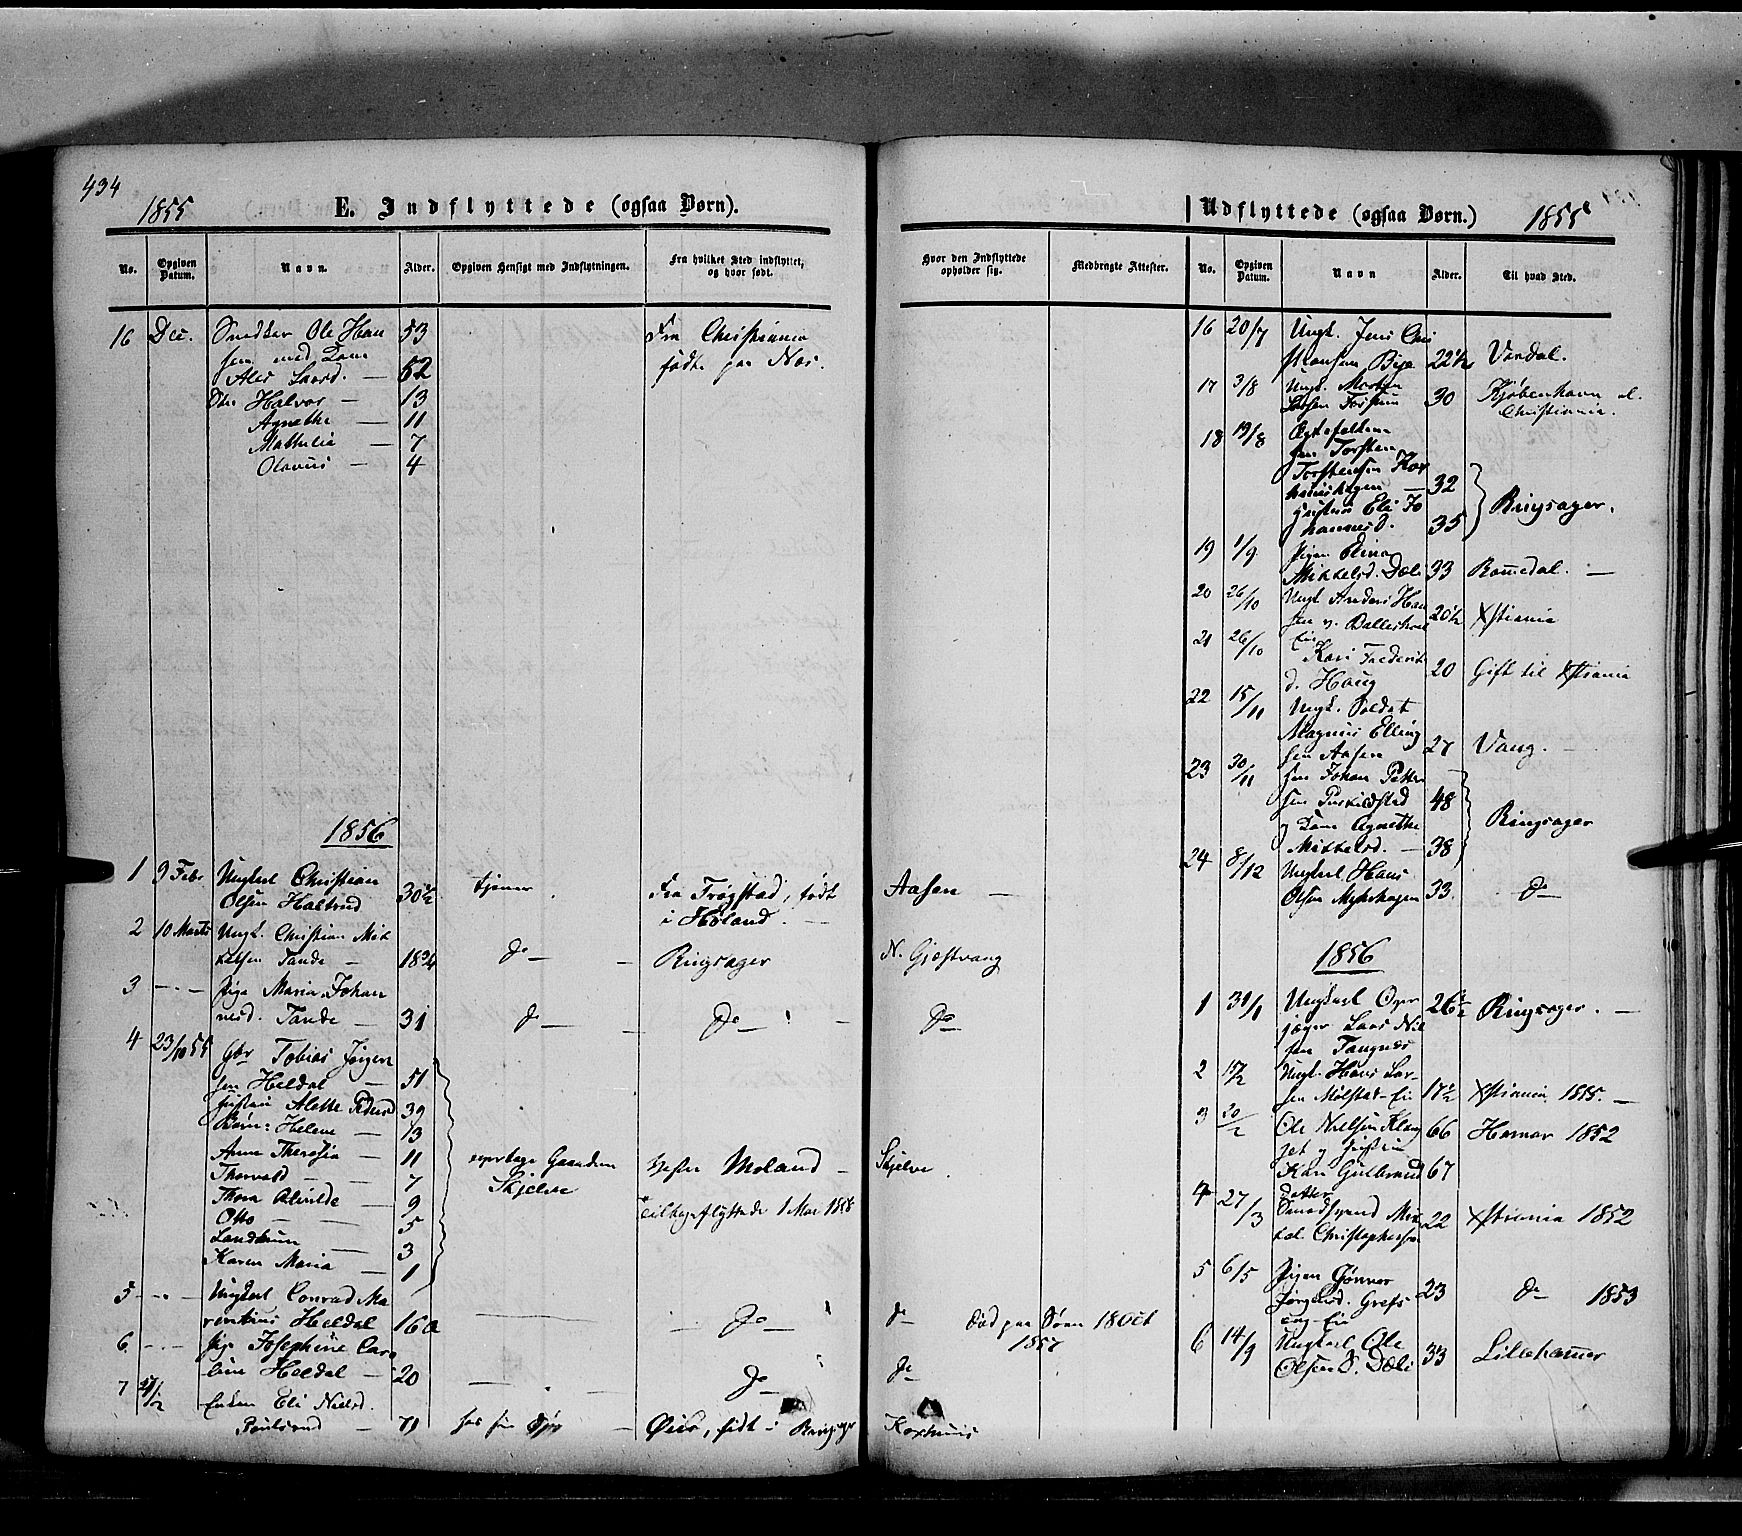 434
1855
E. Indflyttede (ogsaa Børn).
No.
Opgiven Datum.
Navn.
Alder.
Opgiven Hensigt med Indflytningen.
Fra hvilket Sted indflyttet, og hvor født.
16 Dec. Snedker Ole Han 53 Fra Christiania
sen med Kone født paa Næs.
Larsd. — 52
Halvor — 13
Agnethe — 11
Mathilia — 7
Olavus — 4
1856
1 9 Febr Ungkarl Christian tjener Fra Trøgstad, født Aasen —
Olsen Haltrud 30½ i Høland
2 10 Marts Ungk. Christian Mik
kelsen Tande — 18¾ do — Ringsager N. Gjæstvang
3 — Pige Maria Johan
nesd. Tande — 31 do — do — do
4 23/10 55 Gbr Tobias Jørgen
sen Heldal — 51
Hustru Alette Pedersd 39
Børn: Helene — 13
Anne Theresia — 11 Gaarden Moland — Skjelve
Thorvald — 7 Skjelve
Thora Alvilde — 9 tilbageflyttede 1 Mai 1858
Otto — 5
3
Karen Maria — 1
5 — Ungkarl Conrad Ma
rentius Heldal 16 do do Død paa Søen 18 Oct
1857
6 — Pige Josephine Caro
line Heldal — 20 do do
7 Enken Eli Nielsd.
71 hos sin født i Ringsager
Udflyttede (ogsaa Børn.)
1855
Hvor den Indflyttede opholder sig.
Medbragte Attester.
No.
Opgiven Datum.
Navn
Alder.
Til hvad Sted.
16 20/7 Ungk. Jens Chri
stiansen Bye 22½ Vardal.
17 3/8 Ungk. Morten
30 Kjøbenhavn
Christiania.
18 19/8 Ægtefolkene
Torsten
Torstensen Kor
32
Hustru Eli Jo
hannesd. 35 Ringsager.
19 1/9 Pigen Eline
Mikkelsd. Dæli 33 Romedal. —
20 26/10 Ungk Anders Han
sen 20½ Xstiania
21 26/10 Kari Frederik
d. Haug 20 Gift til Xstiania
22 15/11 Ungk. Soldat
Magnus Elling
sen Aasen 27 Vang. —
23 30/11 Johan Peter
sen 48
Kone Agnethe Ringsager
Mikkelsd. — 38
24 8/12 Ungkarl Hans
Olsen Myhrhagen 33. do —
1856
1 31/1 Ungkarl Over 26½ Ringsager. —
jæger Lars Niel
sen Tangnes
2 Ungk. Hans Lar
sen Mølstad-Eie 17½ Xstiania 1855. —
3 20/2 Ole Nielsen Klang 66 Hamar 1852
get og Hustru
Kari Gulbrands 67
datter
4 27/3 22 Xstiania 1852
Christophersen
5 6/5 Pigen Gønner
Jørgensd. Grefs 23 do 1853
eng-Eie
6 14/9 Ungkarl Ole
Olsen S. Dæli 33 Lillehamer